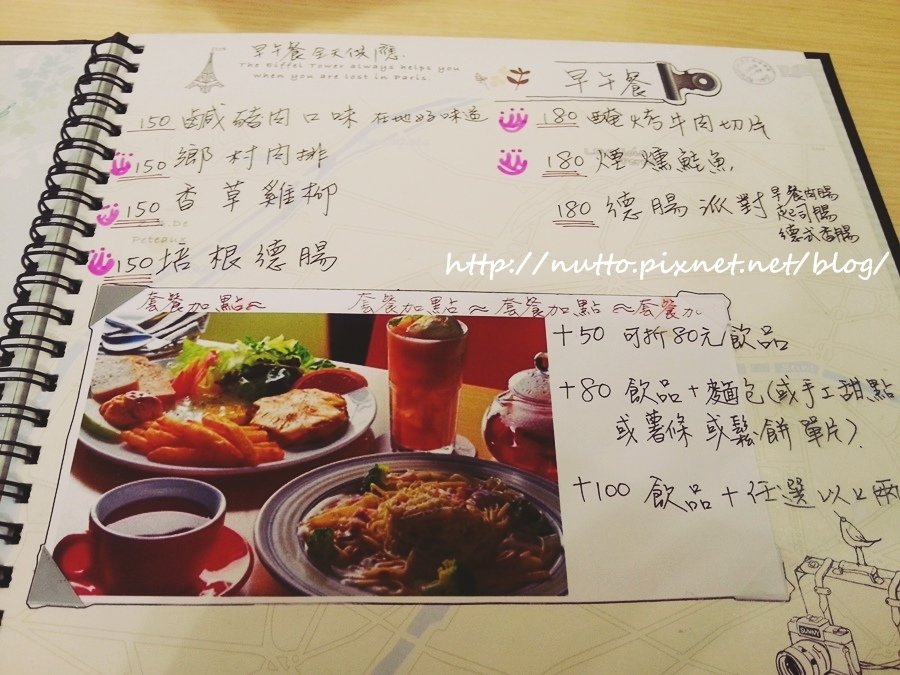 早午餐全天供應
The Eiffel Tower always helps you
when you are lost in Paris.
早午餐
150 鹹豬肉口味 在地好味道
150 鄉村肉排
150 香草雞柳
150 培根德腸
180 醃烤牛肉切片
180 煙燻鮭魚
180 德腸派對 早餐肉腸
起司腸
德式香腸
http://nutto.pixnet.net/blog/
套餐加點~ 套餐加點~套餐加點~套餐加
+50 可折80元飲品
+80 飲品+麵包(或手工甜點
或薯條或鬆餅單片)
+100 飲品+任選以上兩